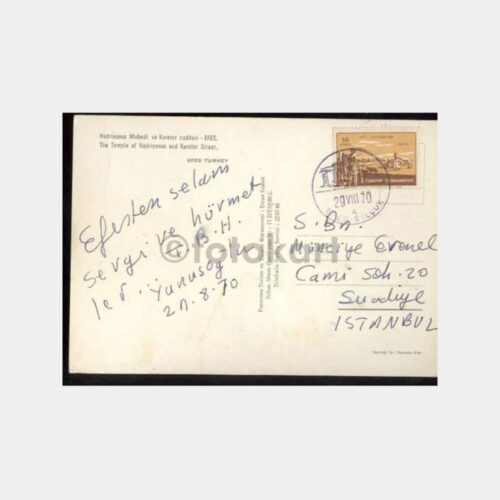 Hadriyanus Mabedi ve Kuretler caddesi - EFES.
The Temple of Hadriyanus and Kuretler Street.
EFES-TURKEY
Efesten selam
sevgi ve hürmet
ler. Yunusoğ
B.H.
20.8.70
50
TÜRKİYE CUMHURİYETİ
29 VIII 70
SELÇUK
S. Bn.
Müzeiye
Cami Sok. 20
Suadiye
İSTANBUL
©fotokart